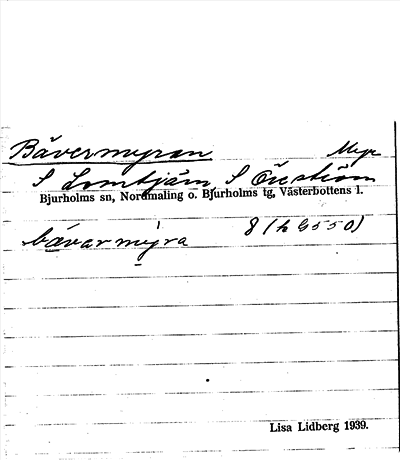 Bävermyran Myr
S Lomtjärn, S Öreström
Bjurholms sn, Nordmaling o. Bjurholms tg, Västerbottens l.
bävarmýra 8 (h 9550)
Lisa Lidberg 1939.